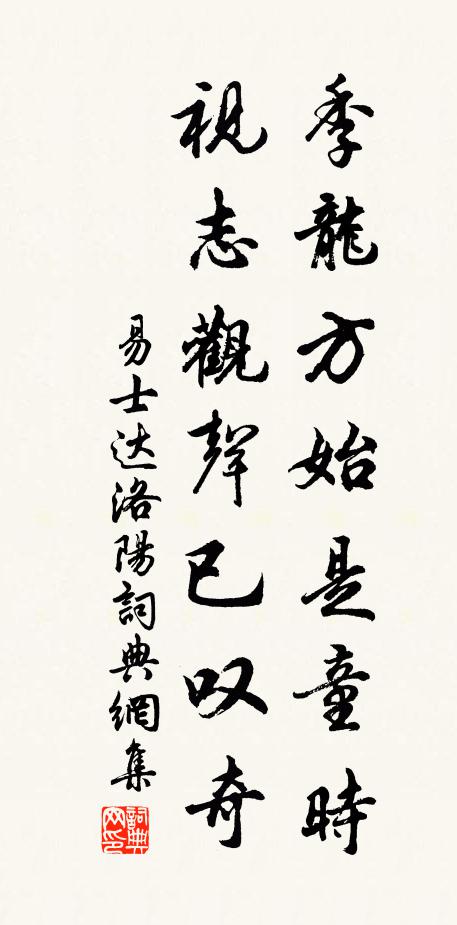 季龍方始是童時
視志觀聲已叹奇
易士达洛陽詞典網集
詞典網印